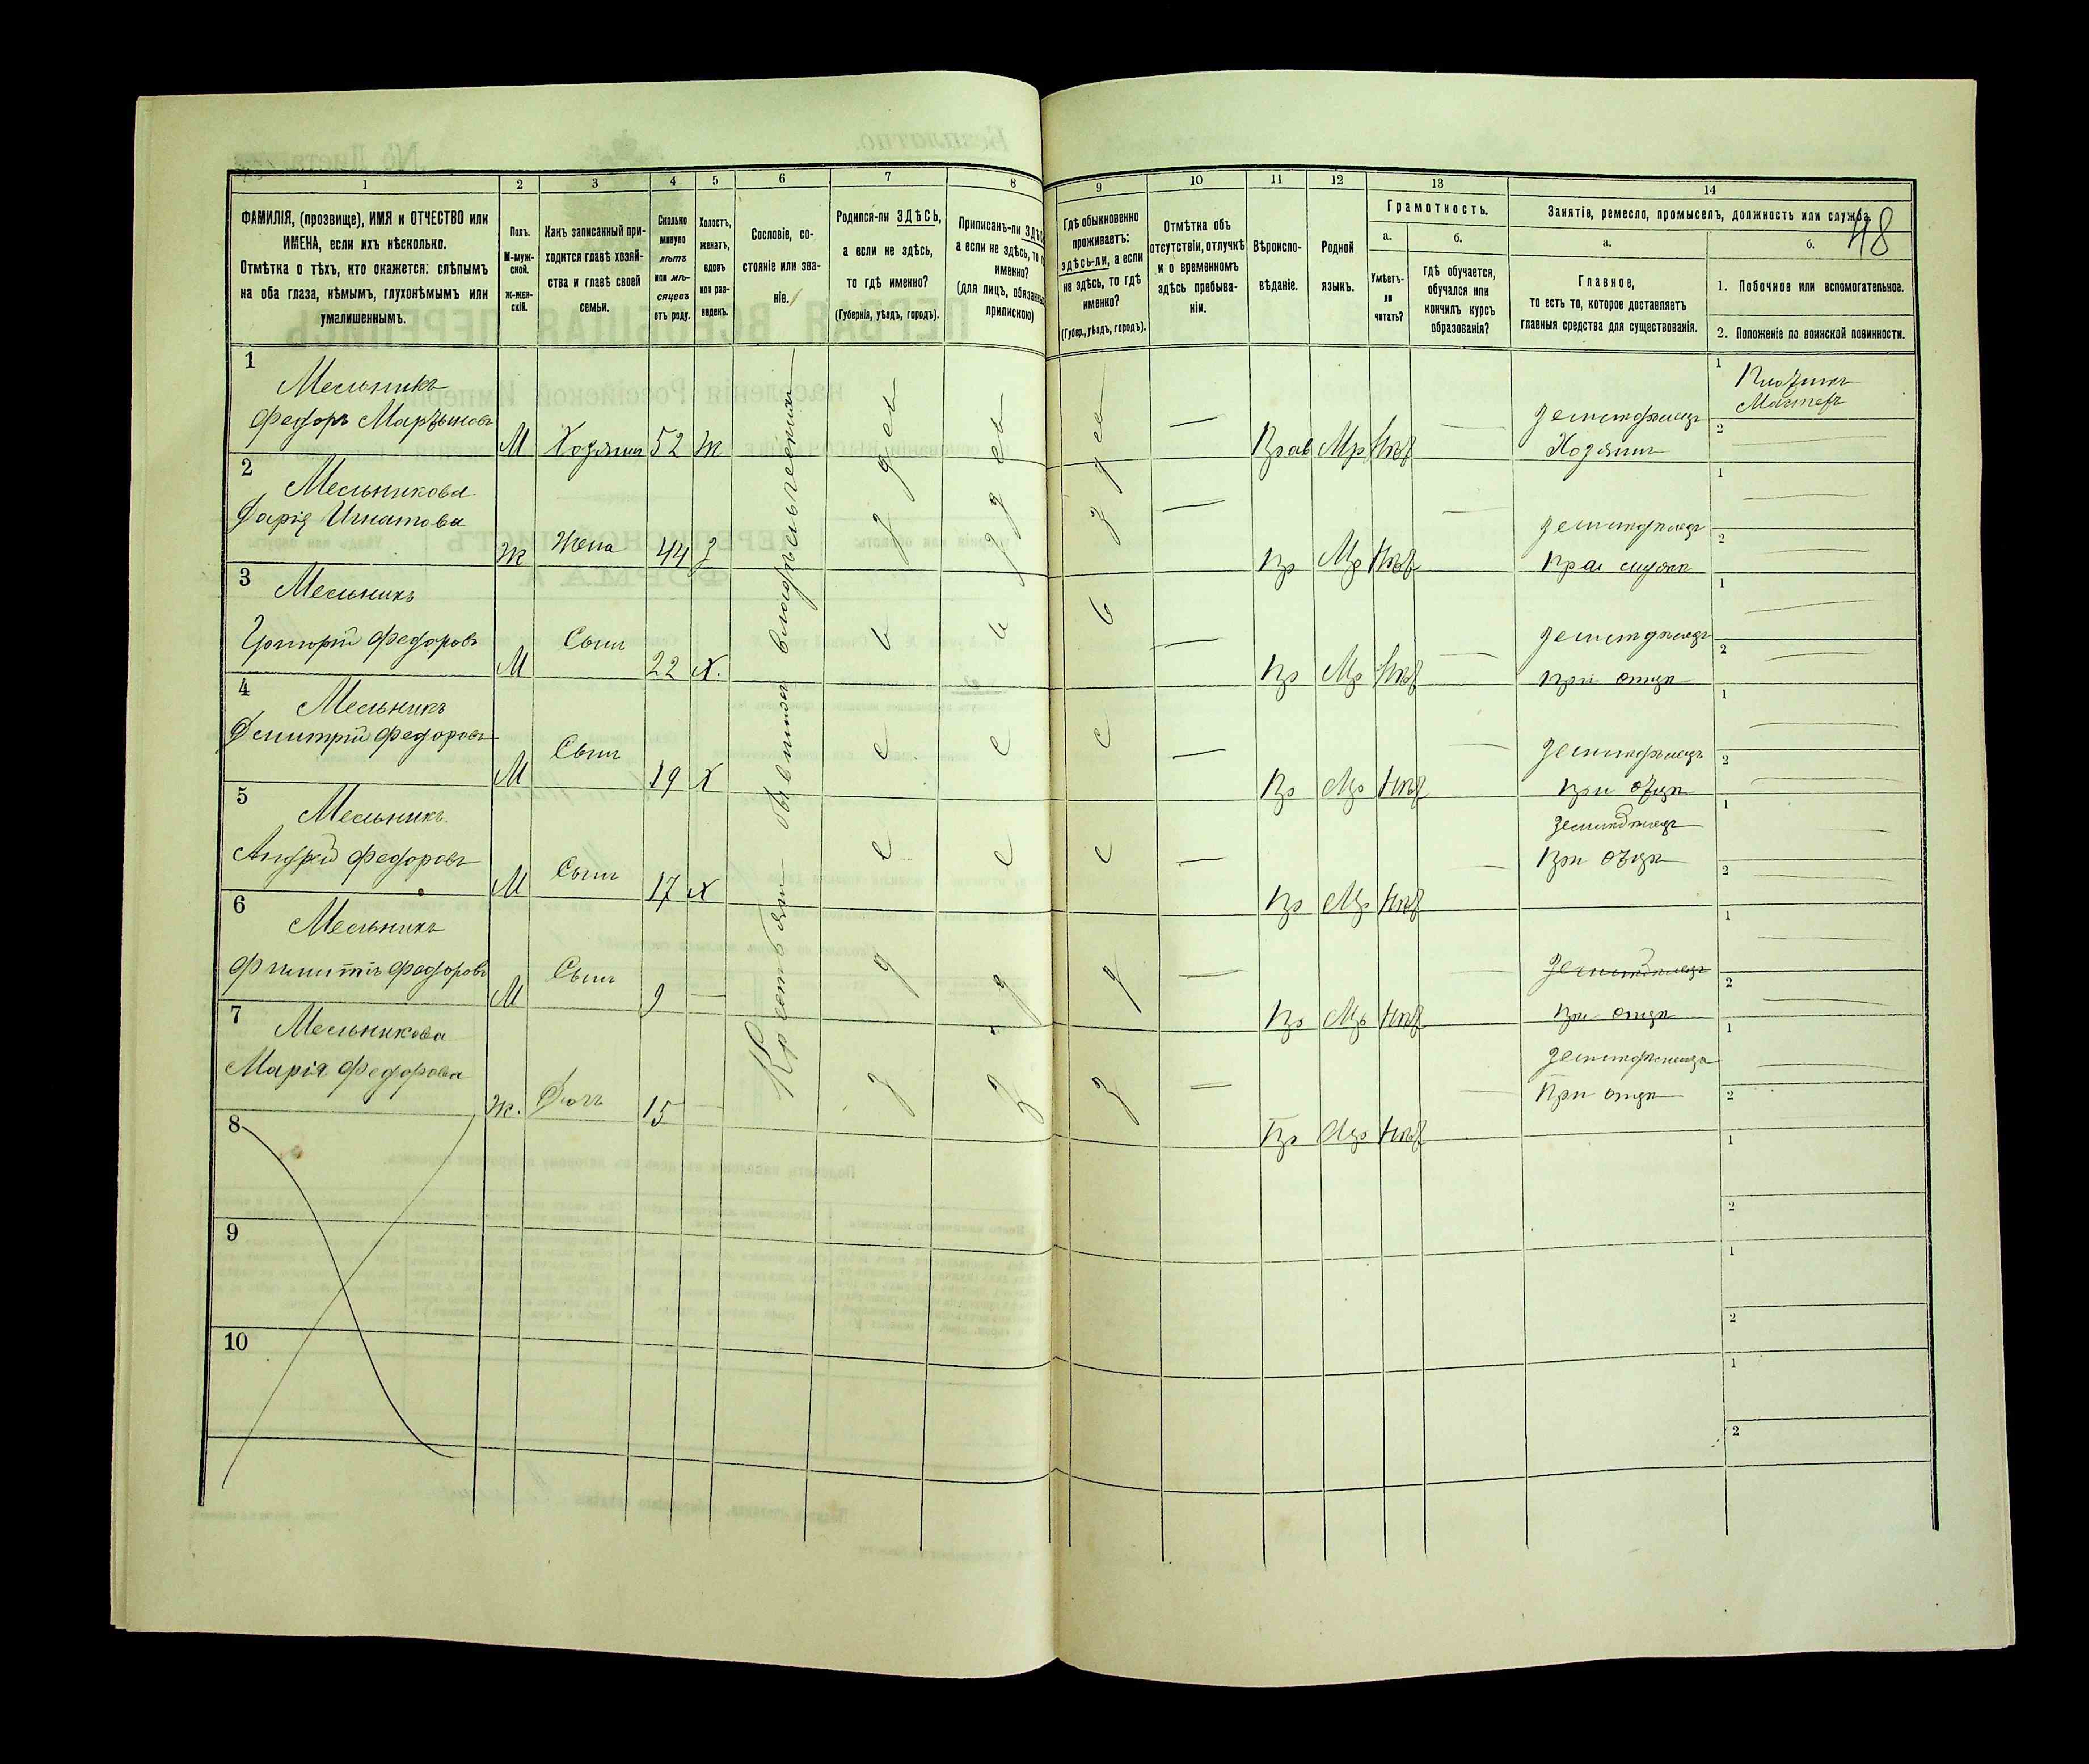 1
2
3
4
5
6
7
8
9
10
11
12
13
14
48
ФАМИЛІЯ, (прозвище), ИМЯ и ОТЧЕСТВО или
ИМЕНА, если ихъ нѣсколько.
Отмѣтка о тѣхъ, кто окажется: слѣпымъ
на оба глаза, нѣмымъ, глухонѣмымъ или
умалишеннымъ.
Полъ.
М-муж-
ской.
Ж-жен-
скій.
Какъ записанный при-
ходится главѣ хозяй-
ства и главѣ своей
семьи.
Сколько
минуло
лѣтъ
или мѣ-
сяцевъ
отъ роду.
Холостъ,
женатъ,
вдовъ
или раз-
веденъ.
Сословіе, со-
стояніе или зва-
ніе.
Родился-ли ЗДѢСЬ,
а если не здѣсь,
то гдѣ именно?
(Губернія, уѣздъ, городъ).
Приписанъ-ли
а если не здѣсь, то
именно?
(для лицъ,
припискою)
Гдѣ обыкновенно
проживаетъ:
здѣсь-ли, а если
не здѣсь, то гдѣ
именно?
(Губер., уѣздъ, городъ).
Отмѣтка объ
отсутствіи, отлучкѣ
и о временномъ
здѣсь пребыва-
ніи.
Вѣроиспо-
вѣданіе.
Родной
языкъ.
Грамотность.
а.
Умѣетъ-
ли
читать?
б.
гдѣ обучается,
обучался или
кончилъ курсъ
образованія?
Занятіе, ремесло, промыселъ, должность или служба.
а.
Главное,
то есть то, которое доставляетъ
главныя средства для существованія.
б.
1. Побочное или вспомогательное.
2. Положеніе по воинской повинности.
Крестьяни бывшихъ владѣльческихъ
здесь
здесь
здесь
1
Мельникъ
Федоръ Мартыновъ
М
Хозяинъ
52
Ж
Прав
Мр
Нѣт
земледѣлецъ
Хозяинъ
1
Мастеръ
2
2
Мельникова
Дарія Игнатова
Ж
Жена
44
З
Пр
Мр
Нѣт
земледѣлецъ
При мужѣ
1
2
3
Мельникъ
Григорій Федоровъ
М
Сынъ
22
Х.
Пр
Мр
Нѣт
земледѣлецъ
при отцѣ
1
2
4
Мельникъ
Дмитрій Федоровъ
М
Сынъ
19
Х
Пр
Мр
Нѣт
земледѣлецъ
при отцѣ
1
2
5
Мельникъ
Андрей Федоровъ
М
Сынъ
17
Х
Пр
Мр
Нѣт
земледѣлецъ
При отцѣ
1
2
6
Мельникъ
Федоровъ
М
Сынъ
9
Пр
Мр
Нѣт
земледѣлецъ
при отцѣ
1
2
7
Мельникова
Марія Федорова
Ж.
Дочь
15
Пр
Мр
Нѣт
земледѣлецъ
При отцѣ
1
2
8
1
2
9
1
2
10
1
2